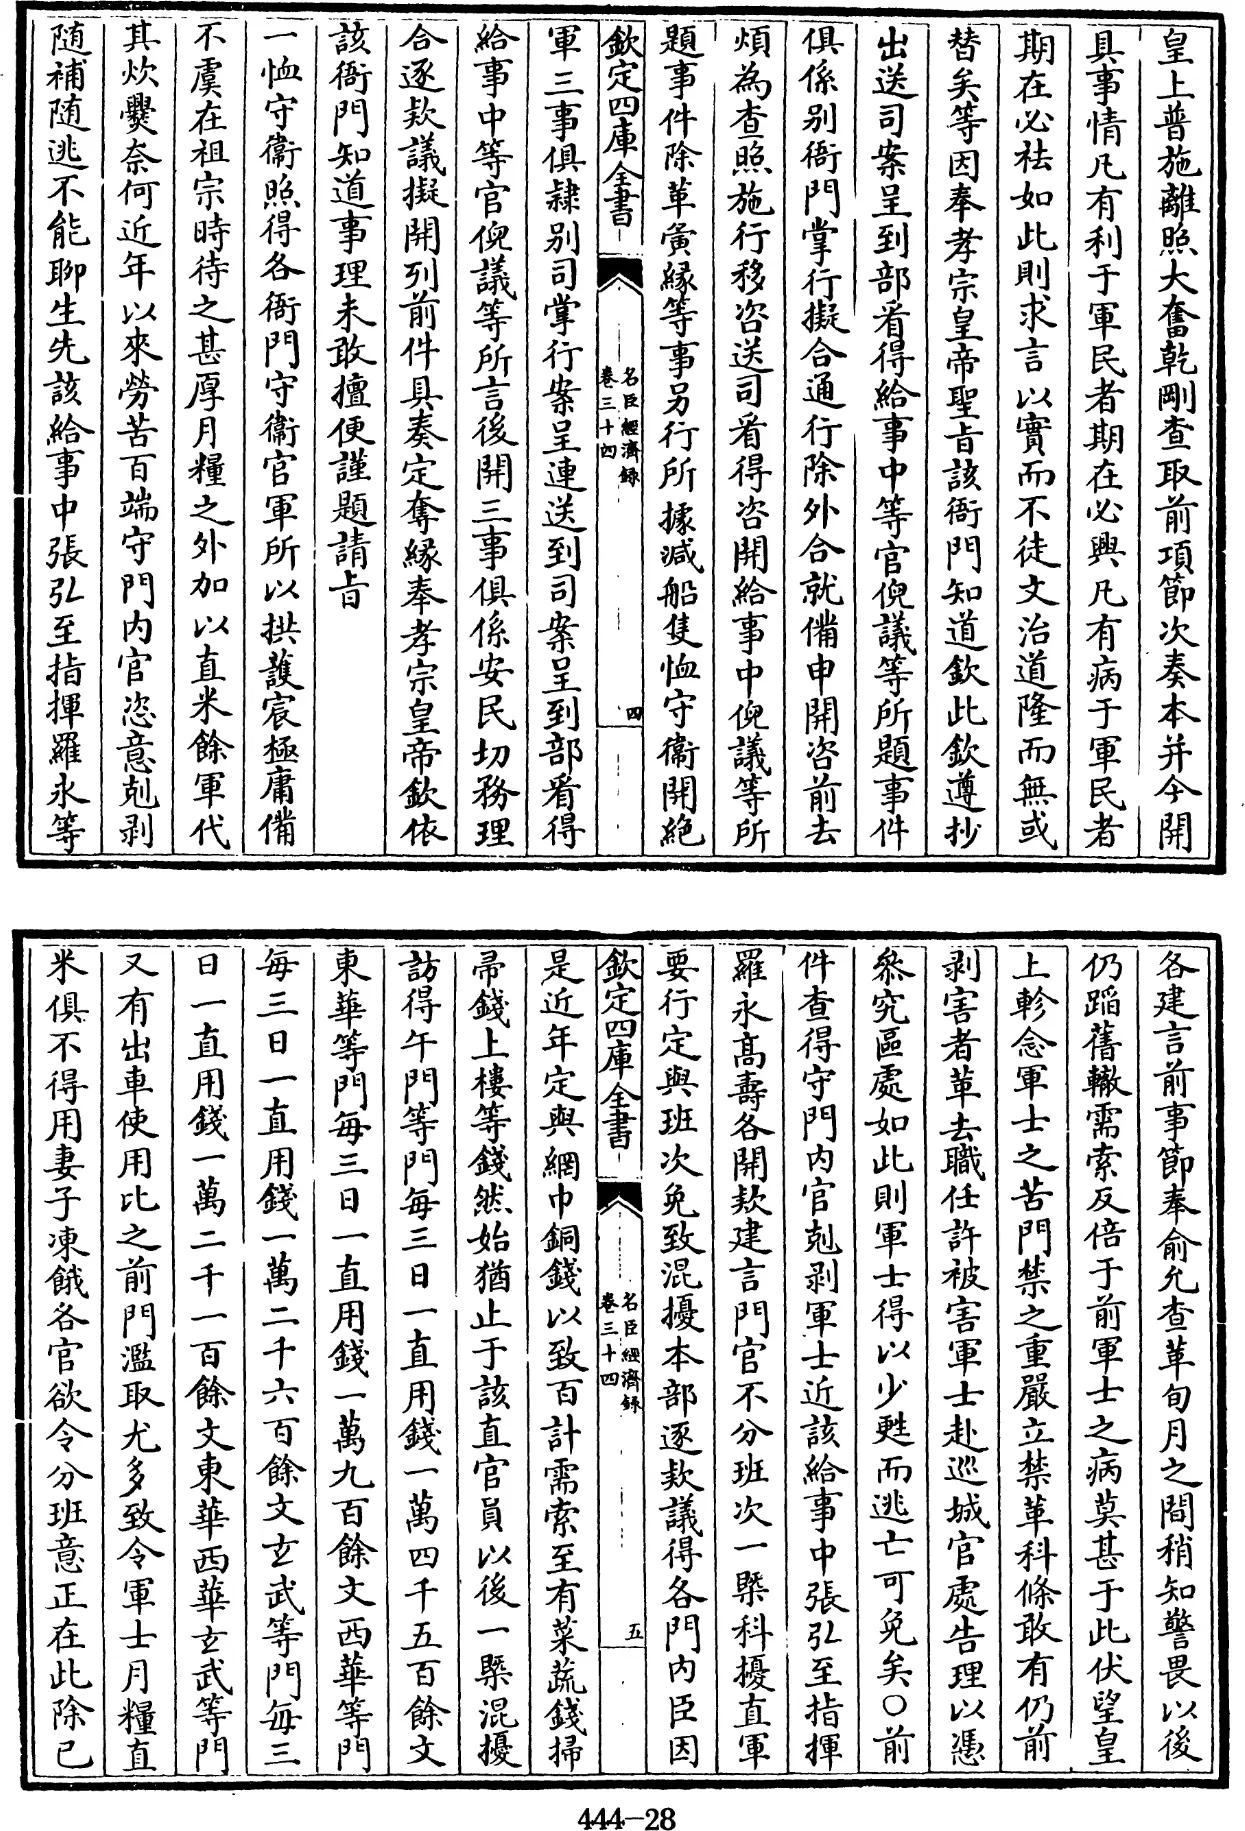 皇上普施離照大奮乾剛查取前項節次奏本并今開
具事情凡有利于軍民者期在必興凡有病于軍民者
期在必祛如此則求言以實而不徒文治道隆而無或
替矣等因奉孝宗皇帝聖㫖該衙門知道欽此欽遵抄
出送司案呈到部看得給事中等官倪議等所題事件
俱係别衙門掌行擬合通行除外合就備申開咨前去
煩為查照施行移咨送司看得咨開給事中倪議等所
題事件除革夤緣等事另行所據減船隻恤守衛開絶
欽定四庫全書
名臣經濟録
卷三十四
四
軍三事俱隷别司掌行案呈連送到司案呈到部看得
給事中等官倪議等所言後開三事俱係安民切務理
合逐欵議擬開列前件具奏定奪緣奉孝宗皇帝欽依
該衙門知道事理未敢擅便謹題請㫖
一恤守衛照得各衙門守衛官軍所以拱護宸極庸備
不虞在祖宗時待之甚厚月糧之外加以直米餘軍代
其炊爨奈何近年以來勞苦百端守門内官恣意剋剥
随補随逃不能聊生先該給事中張弘至指揮羅永等
各建言前事節奉俞允查革旬月之間稍知警畏以後
仍蹈舊轍需索反倍于前軍士之病莫甚于此伏望皇
上軫念軍士之苦門禁之重嚴立禁革科條敢有仍前
剥害者革去職任許被害軍士赴巡城官處告理以憑
叅究區處如此則軍士得以少甦而逃亡可免矣○前
件查得守門内官剋剥軍士近該給事中張弘至指揮
羅永高壽各開欵建言門官不分班次一槩科擾直軍
要行定與班次免致混擾本部逐欵議得各門内臣因
欽定四庫全書
名臣經濟録
卷三十四
五
是近年定與網巾銅錢以致百計需索至有菜蔬錢掃
帚錢上樓等錢然始猶止于該直官員以後一槩混擾
訪得午門等門每三日一直用錢一萬四千五百餘文
東華等門每三日一直用錢一萬九百餘文西華等門
每三日一直用錢一萬二千六百餘文玄武等門每三
日一直用錢一萬二千一百餘文東華西華玄武等門
又有出車使用比之前門濫取尤多致令軍士月糧直
米俱不得用妻子凍餓各官欲令分班意正在此除已
444-28